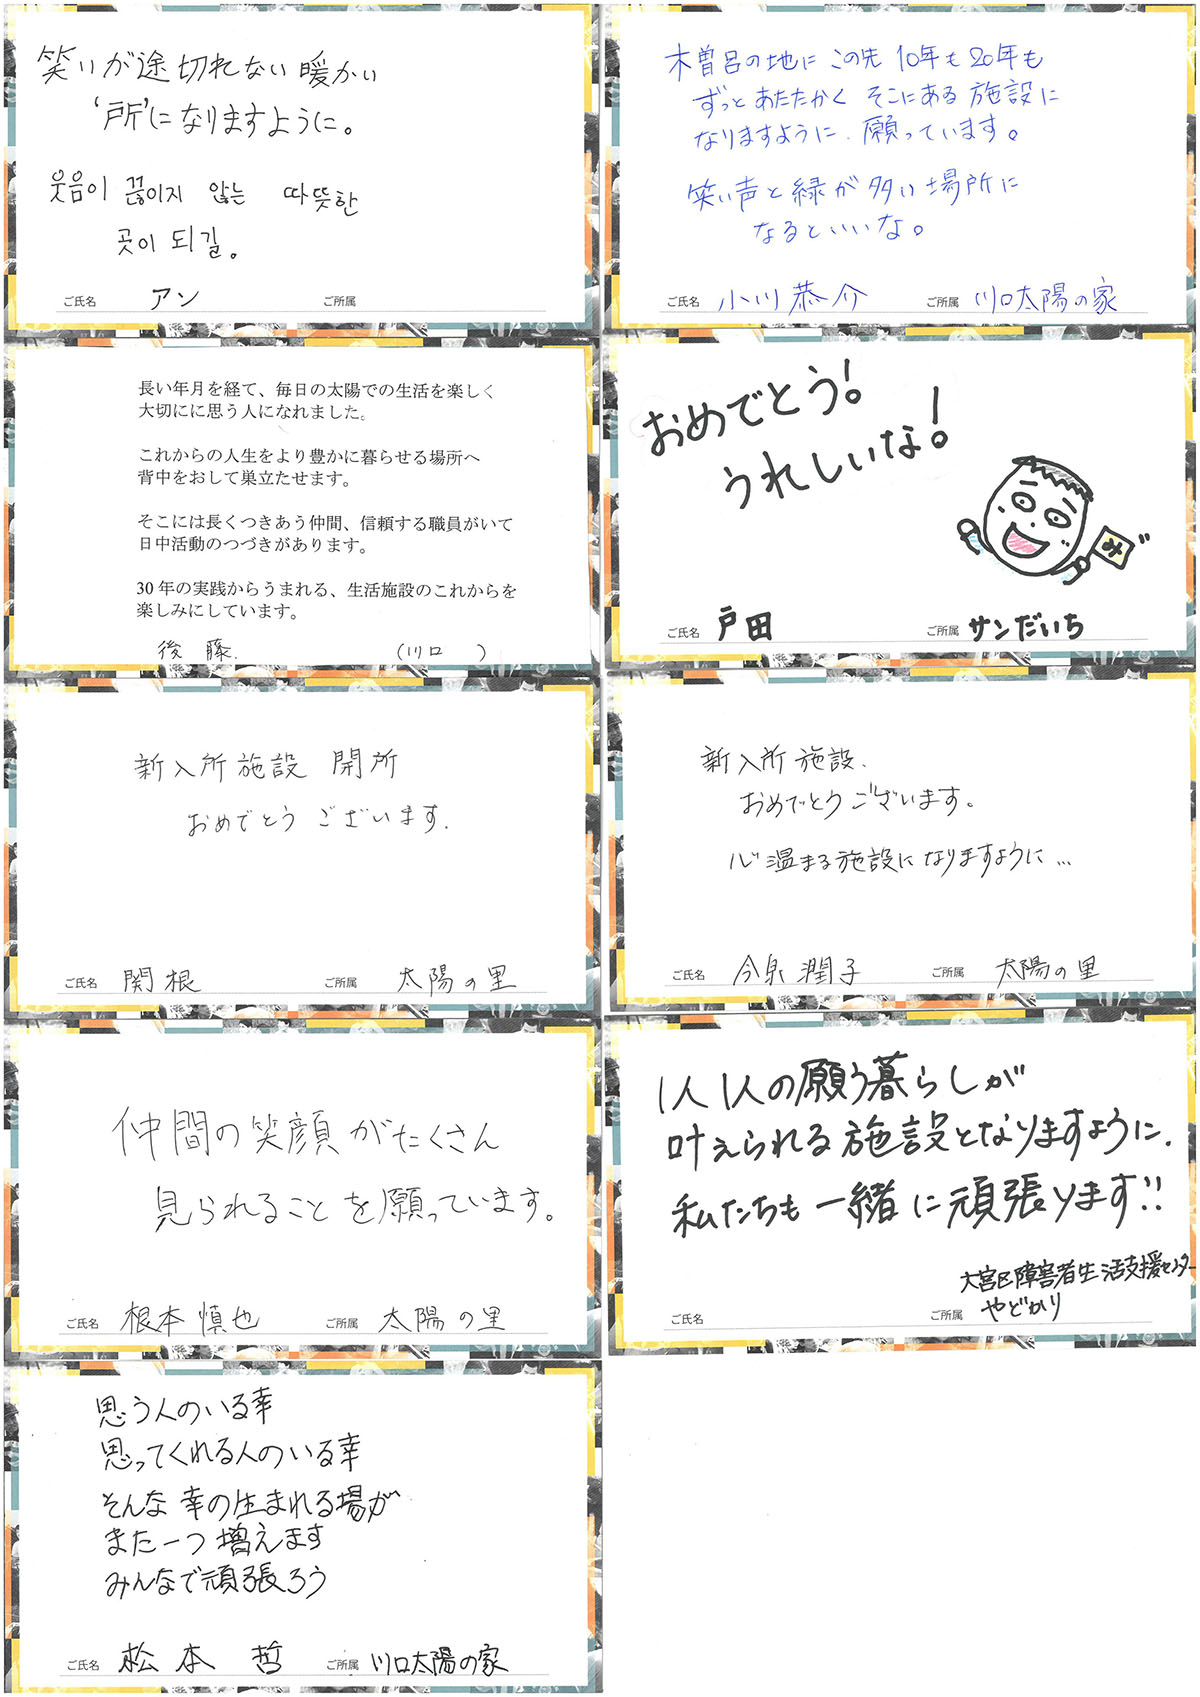 笑いが途切れない暖かい
'所'になりますように。
웃음이 끊이지 않는 따뜻한
곳이 되길。
ご氏名 アン ご所属
木曽呂の地に この先 10年も20年も
ずっと あたたかく そこにある 施設に
なりますように、願っています。
笑い声と緑が多い場所に
なるといいな。
ご氏名 小川恭介 ご所属 川口太陽の家
長い年月を経て、毎日の太陽での生活を楽しく
大切にに思う人になれました。
これからの人生をより豊かに暮らせる場所へ
背中をおして巣立たせます。
そこには長くつきあう仲間、信頼する職員がいて
日中活動のつづきがあります。
30 年の実践からうまれる、生活施設のこれからを
楽しみにしています。
後藤 (川口 )
おめでとう!
うれしいな!
み
ご氏名 戸田 ご所属 サンだいち
新入所施設 開所
おめでとう ございます.
ご氏名 関根 ご所属 太陽の里
新入所 施設、
おめでとうございます。
心温まる施設になりますように…
ご氏名 今泉潤子 ご所属 太陽の里
仲間の笑顔がたくさん
見られることを願っています。
ご氏名 根本慎也 ご所属 太陽の里
1人1人の願う暮らしが
叶えられる施設となりますように.
私たちも一緒に頑張ります!!
大宮区障害者生活支援センター
ご氏名 ご所属 やどかり
思う人のいる幸
思ってくれる人のいる幸
そんな幸の生まれる場が
また一つ増えます
みんなで頑張ろう
ご氏名 松本 哲 ご所属 川口太陽の家